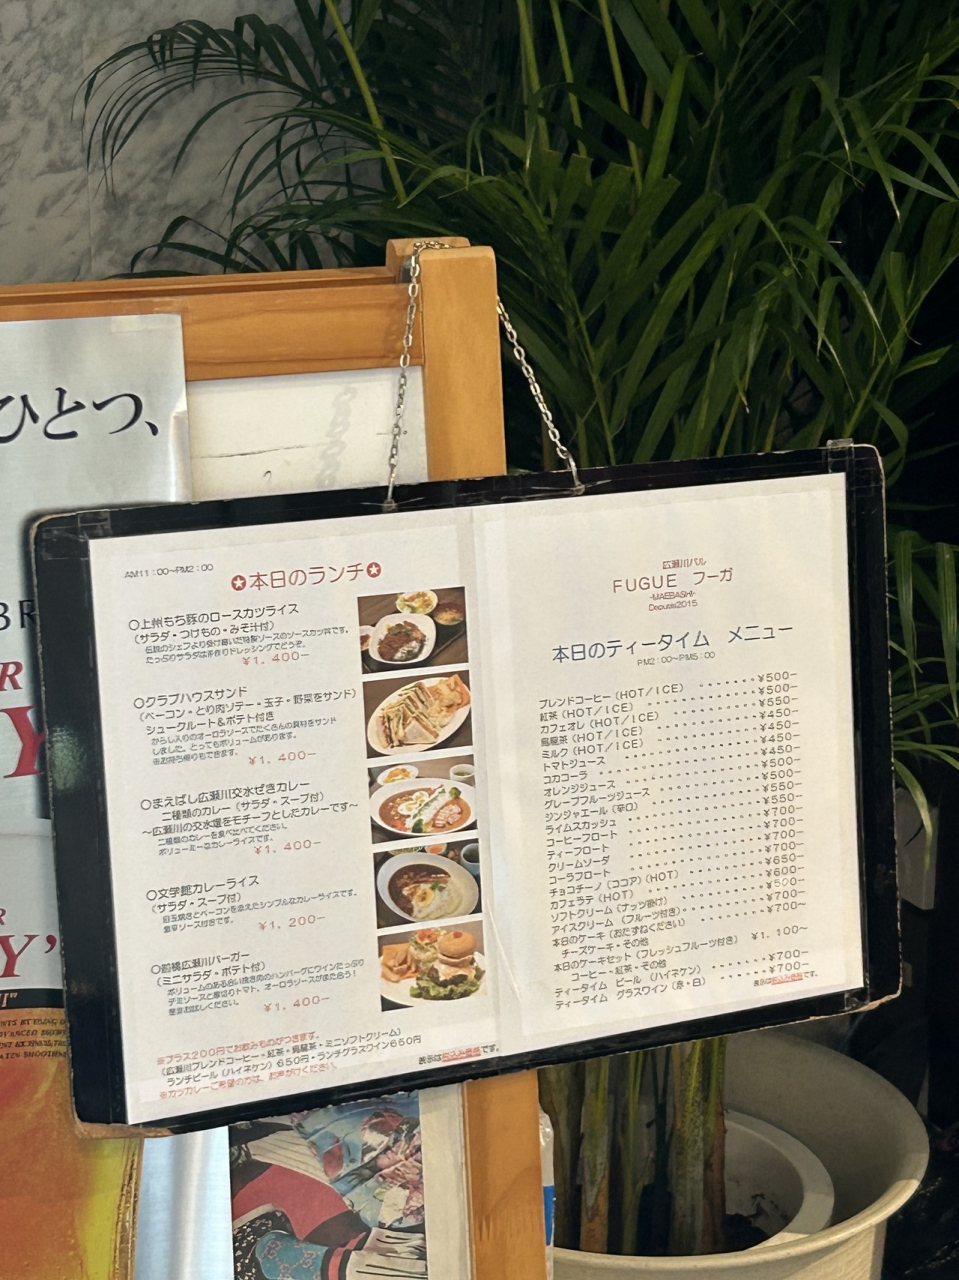 ひとつ、
AM11:00~PM2:00
✪本日のランチ✪
○上州もち豚のロースカツライス
(サラダ・つけもの・みそ汁付)
伝説のシェフより受け継いだ特製ソースのソースカツ丼です。
たっぷりサラダは手作りドレッシングでどうぞ。
¥1.400−
○クラブハウスサンド
(ベーコン・とり肉ソテー・玉子・野菜をサンド)
シュークルート&ポテト付き
からし入りのオーロラソースでたくさんの具材をサンド
しました。とってもボリュームがあります。
※お持ち帰りもできます。
¥1.400−
○まえばし広瀬川交水ぜきカレー
二種類のカレー(サラダ・スープ付)
~広瀬川の交水堰をモチーフとしたカレーです~
二種類のカレーを食べ比べてください。
ボリューミーなカレーライスです。
¥1.400−
○文学館カレーライス
(サラダ・スープ付)
目玉焼きとベーコンを添えたシンプルなカレーライスです。
¥1.200−
○前橋広瀬川バーガー
(ミニサラダ・ポテト付)
ボリュームのある合い挽き肉のハンバーグにワインたっぷり
デミソースと厚切りトマト、オーロラソースがまた合う!
是非お試しください。
¥1.400−
※プラス200円でお飲みものがつきます。
(広瀬川ブレンドコーヒー・紅茶・烏龍茶・ミニソフトクリーム)
ランチビール(ハイネケン)650円・ランチグラスワイン650円
※カツカレーご希望の方は、お声がけください。
表示は税込み価格です。
広瀬川バル
FUGUE フーガ
-MAEBASHI-
Depuis2015
本日のティータイム メニュー
PM2:00~PM5:00
ブレンドコーヒー(HOT/ICE) ¥500−
紅茶(HOT/ICE) ¥500−
カフェオレ(HOT/ICE) ¥550−
烏龍茶(HOT/ICE) ¥450−
ミルク(HOT/ICE) ¥450−
トマトジュース ¥450−
コカコーラ ¥450−
オレンジジュース ¥500−
グレープフルーツジュース ¥500−
ジンジャエール(辛口) ¥550−
ライムスカッシュ ¥550−
コーヒーフロート ¥700−
ティーフロート ¥700−
クリームソーダ ¥700−
コーラフロート ¥700−
チョコチーノ(ココア)(HOT) ¥650−
カフェラテ(HOT) ¥600−
ソフトクリーム(ナッツ掛け) ¥500−
アイスクリーム(フルーツ付き) ¥700−
本日のケーキ(おたずねください) ¥700~
チーズケーキ・その他
本日のケーキセット(フレッシュフルーツ付き) ¥1.100~
コーヒー・紅茶・その他
ティータイム ビール(ハイネケン) ¥700−
ティータイム グラスワイン(赤・白) ¥700−
表示は税込み価格です。